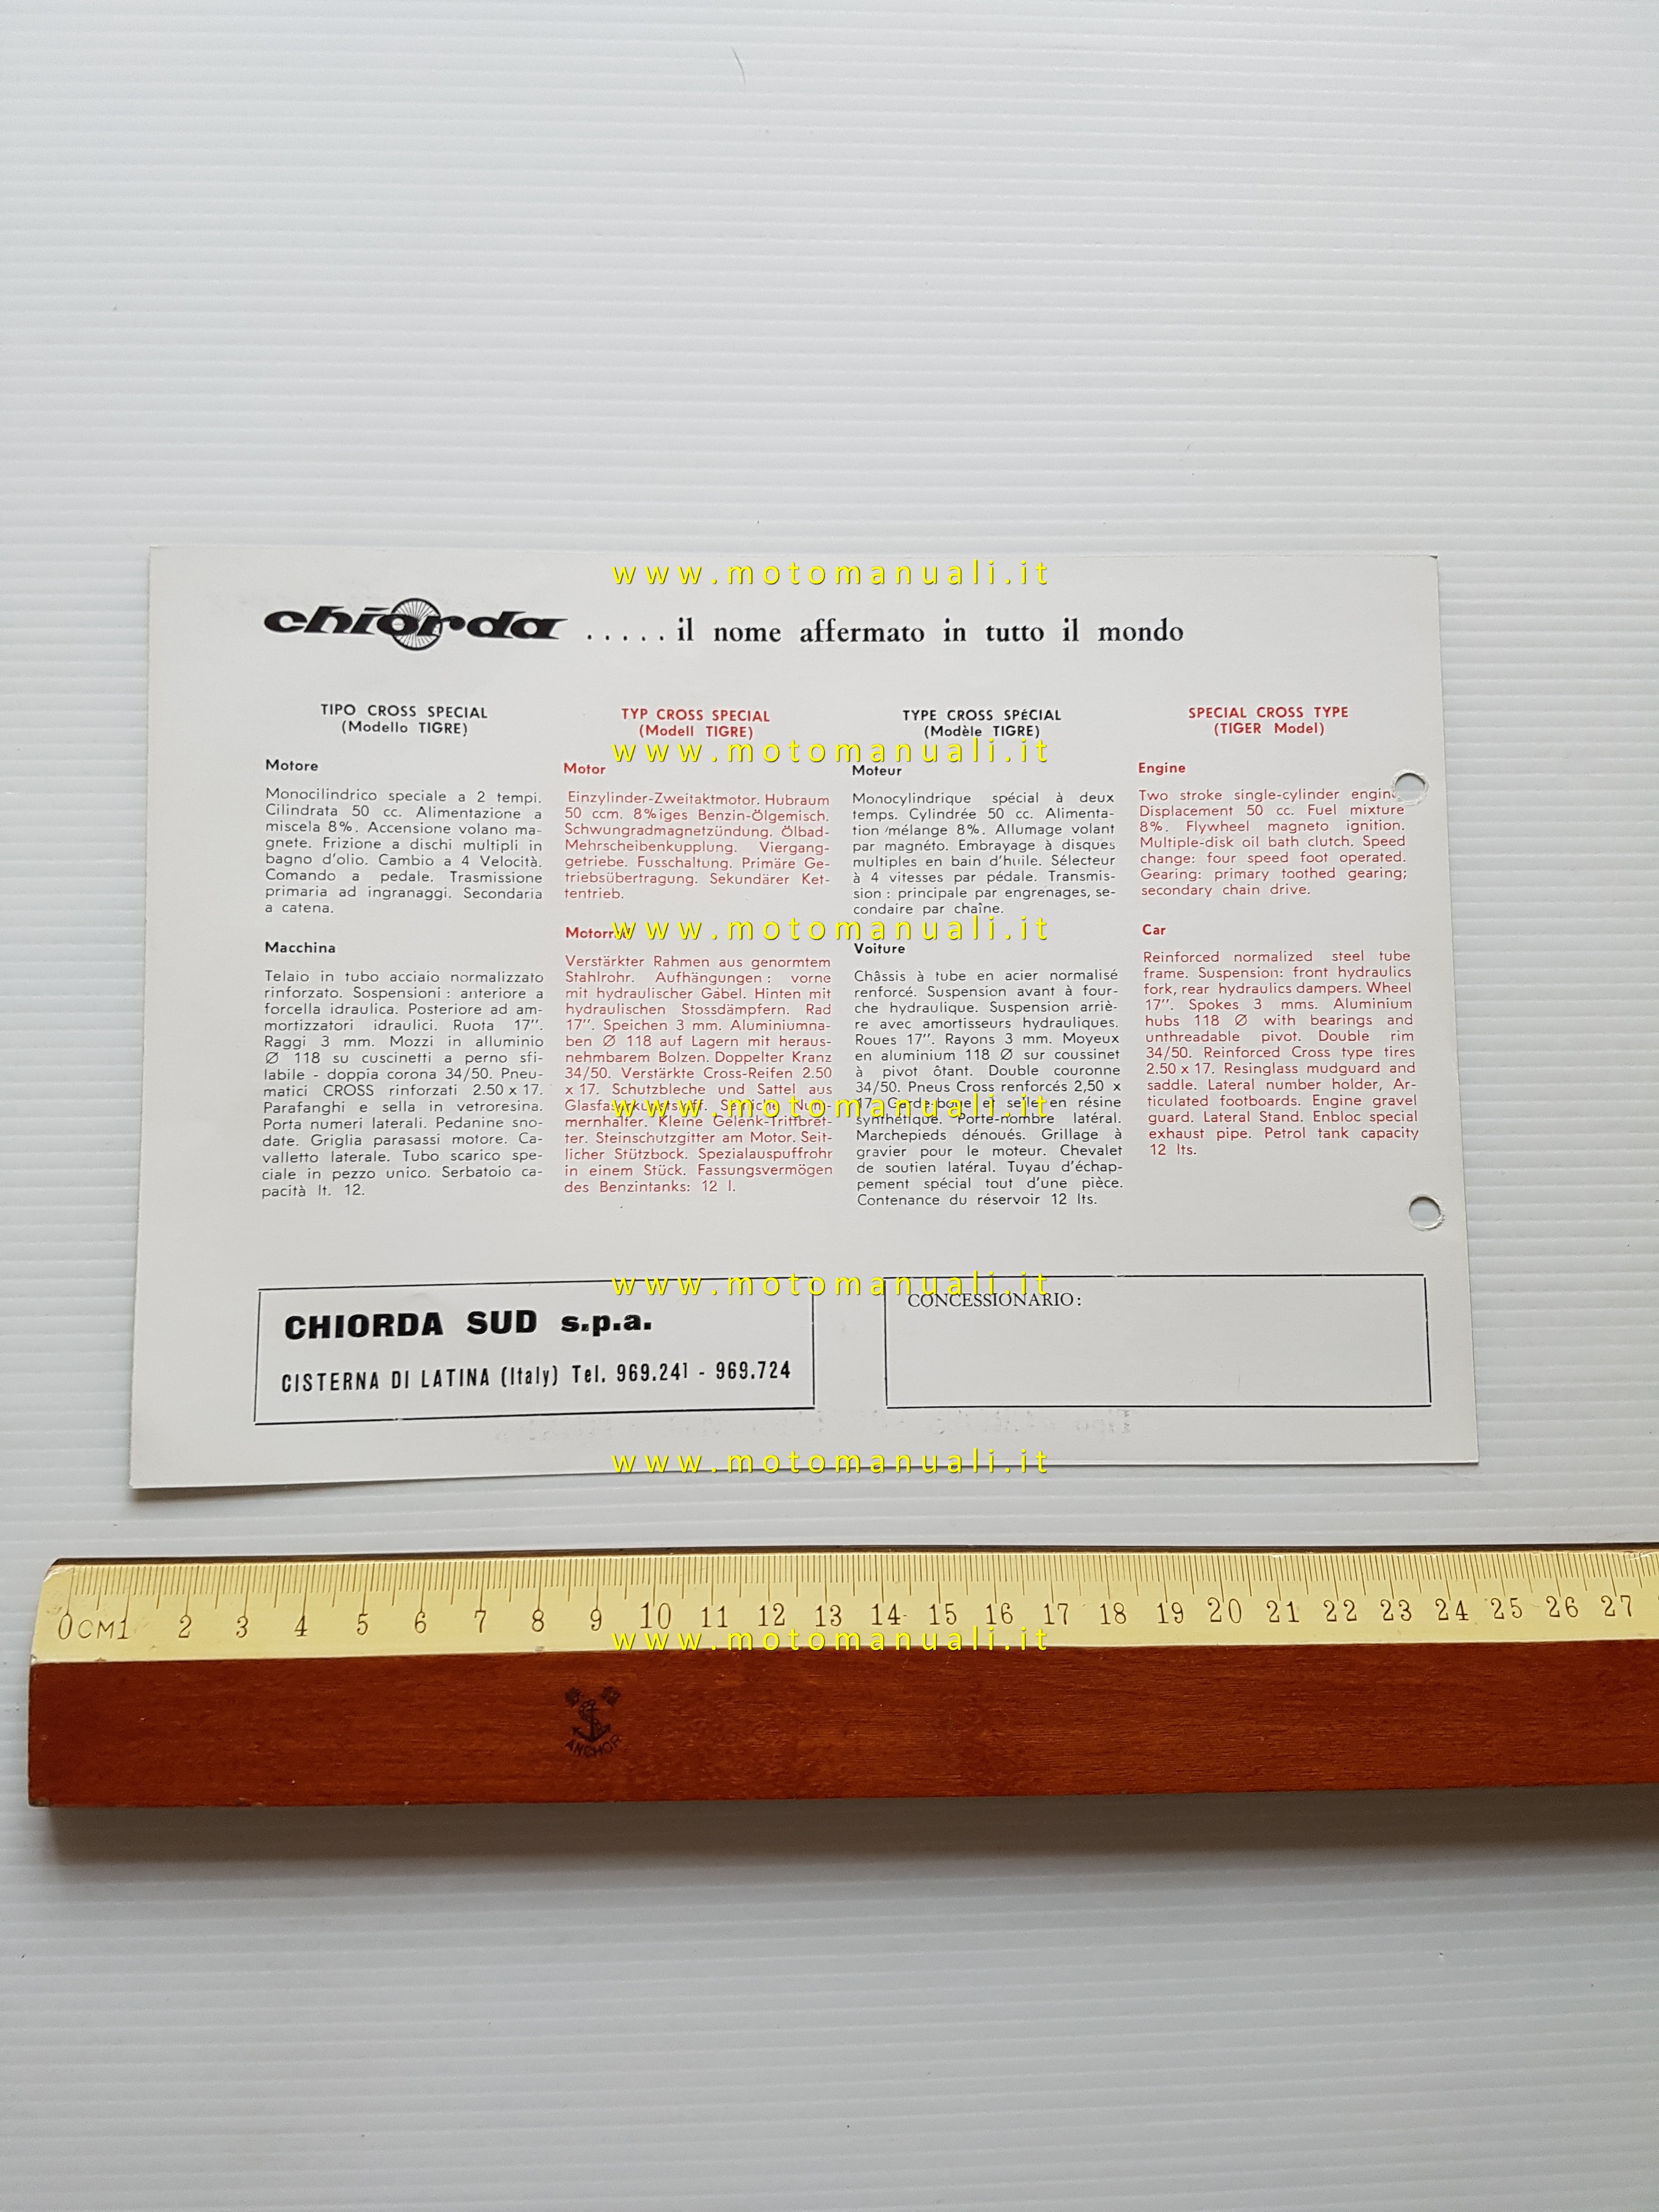 www.motomanuali.it
chiorda ..... il nome affermato in tutto il mondo
TIPO CROSS SPECIAL
(Modello TIGRE)
Motore
Monocilindrico speciale a 2 tempi.
Cilindrata 50 cc. Alimentazione a
miscela 8%. Accensione volano ma-
gnete. Frizione a dischi multipli in
bagno d'olio. Cambio a 4 Velocità.
Comando a pedale. Trasmissione
primaria ad ingranaggi. Secondaria
a catena.
Macchina
Telaio in tubo acciaio normalizzato
rinforzato. Sospensioni : anteriore a
forcella idraulica. Posteriore ad am-
mortizzatori idraulici. Ruota 17".
Raggi 3 mm. Mozzi in alluminio
Ø 118 su cuscinetti a perno sfi-
labile - doppia corona 34/50. Pneu-
matici CROSS rinforzati 2.50 x 17.
Parafanghi e sella in vetroresina.
Porta numeri laterali. Pedanine sno-
date. Griglia parasassi motore. Ca-
valletto laterale. Tubo scarico spe-
ciale in pezzo unico. Serbatoio ca-
pacità lt. 12.
TYP CROSS SPECIAL
(Modell TIGRE)
www.motomanuali.it
Motor
Einzylinder-Zweitaktmotor. Hubraum
50 ccm. 8%iges Benzin-Ölgemisch.
Schwungradmagnetzündung. Ölbad-
Mehrscheibenkupplung. Viergang-
getriebe. Fusschaltung. Primäre Ge-
triebsübertragung. Sekundärer Ket-
tentrieb.
www.motomanuali.it
Verstärkter Rahmen aus genormtem
Stahlrohr. Aufhängungen : vorne
mit hydraulischer Gabel. Hinten mit
hydraulischen Stossdämpfern. Rad
17". Speichen 3 mm. Aluminiumna-
ben Ø 118 auf Lagern mit heraus-
nehmbarem Bolzen. Doppelter Kranz
34/50. Verstärkte Cross-Reifen 2.50
x 17. Schutzbleche und Sattel aus
www.motomanuali.it
mernhalter. Kleine Gelenk-Trittbret-
ter. Steinschutzgitter am Motor. Seit-
licher Stützbock. Spezialauspuffrohr
in einem Stück. Fassungsvermögen
des Benzintanks: 12 l.
TYPE CROSS SPÉCIAL
(Modèle TIGRE)
Moteur
Monocylindrique spécial à deux
temps. Cylindrée 50 cc. Alimenta-
tion mélange 8%. Allumage volant
par magnéto. Embrayage à disques
multiples en bain d'huile. Sélecteur
à 4 vitesses par pédale. Transmis-
sion : principale par engrenages, se-
condaire par chaîne.
Voiture
Châssis à tube en acier normalisé
renforcé. Suspension avant à four-
che hydraulique. Suspension arriè-
re avec amortisseurs hydrauliques.
Roues 17". Rayons 3 mm. Moyeux
en aluminium 118 Ø sur coussinet
à pivot ôtant. Double couronne
34/50. Pneus Cross renforcés 2,50 x
17. Garde-boue et selle en résine
synthétique. Porte-nombre latéral.
Marchepieds dénoués. Grillage à
gravier pour le moteur. Chevalet
de soutien latéral. Tuyau d'échap-
pement spécial tout d'une pièce.
Contenance du réservoir 12 lts.
SPECIAL CROSS TYPE
(TIGER Model)
Engine
Two stroke single-cylinder engin
Displacement 50 cc. Fuel mixture
8%. Flywheel magneto ignition.
Multiple-disk oil bath clutch. Speed
change: four speed foot operated.
Gearing: primary toothed gearing;
secondary chain drive.
Car
Reinforced normalized steel tube
frame. Suspension: front hydraulics
fork, rear hydraulics dampers. Wheel
17". Spokes 3 mms. Aluminium
hubs 118 Ø with bearings and
unthreadable pivot. Double rim
34/50. Reinforced Cross type tires
2.50 x 17. Resinglass mudguard and
saddle. Lateral number holder, Ar-
ticulated footboards. Engine gravel
guard. Lateral Stand. Enbloc special
exhaust pipe. Petrol tank capacity
12 lts.
www.motomanuali.it
CHIORDA SUD s.p.a.
CISTERNA DI LATINA (Italy) Tel. 969.241 - 969.724
CONCESSIONARIO:
www.motomanuali.it
0CM1 2 3 4 5 6 7 8 9 10 11 12 13 14 15 16 17 18 19 20 21 22 23 24 25 26 27
www.motomanuali.it
ANCHOR